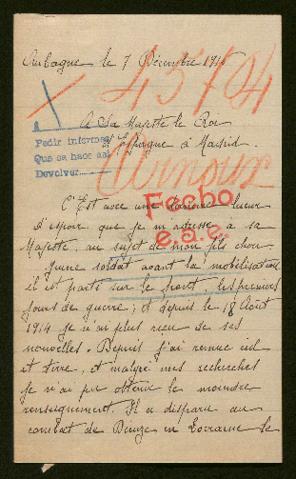 Aubagne le 7 Décembre 1915
45704
A Sa Majesté le Roi
d'Espagne à Madrid.
Pedir informes
Que se hace así
Devolver
Arnoux
Fecho
e.s.e.
C'Est avec une dernière lueur
d'espoir que je m'adresse à sa
Majesté, au sujet de mon fils cher
Jeune soldat avant la mobilisation
il est partis sur le front les premiers
jours de guerre; et depuis le 18 Août
1914 je n'ai plus reçu de ses
nouvelles. Depuis j'ai remué ciel
et terre, et malgré mes recherches
je n'ai pu obtenir le moindre
renseignement. Il a disparu au
combat de Dieuze en Lorraine le